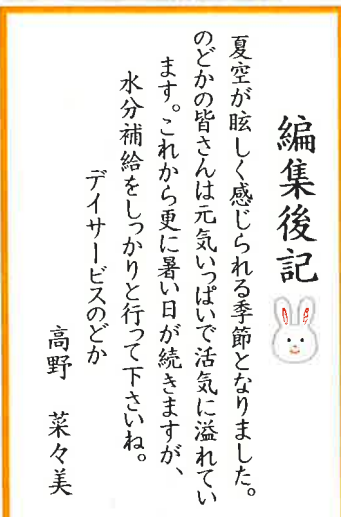 編集後記
夏空が眩しく感じられる季節となりました。
のどかの皆さんは元気いっぱいで活気に溢れてい
ます。これから更に暑い日が続きますが、
水分補給をしっかりと行って下さいね。
デイサービスのどか
高野 菜々美